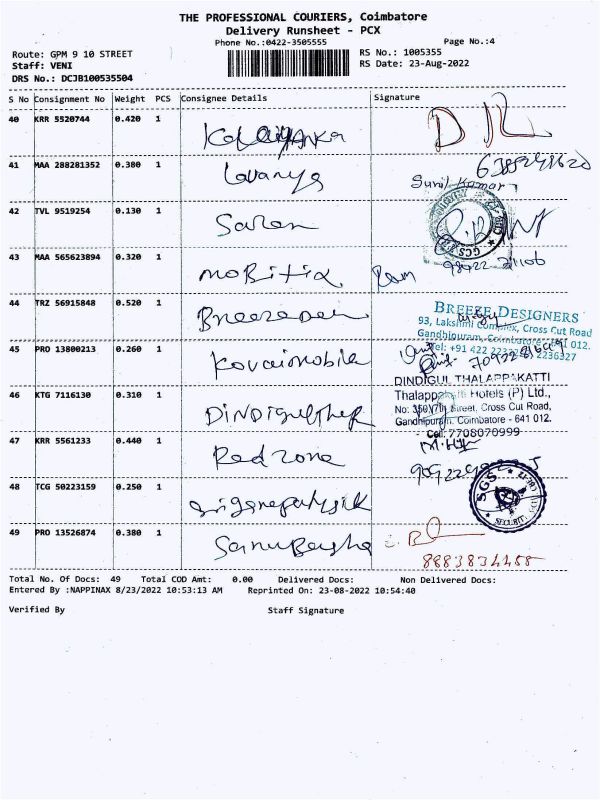 THE PROFESSIONAL COURIERS, Coimbatore
Delivery Runsheet - PCX
Phone No.:0422-3505555
Page No.:4
Route: GPM 9 10 STREET
RS No.: 1005355
Staff: VENI
RS Date: 23-Aug-2022
DRS No.: DCJB100535504
S No Consignment No Weight PCS Consignee Details Signature
40 KRR 5520744 0.420 1
41 MAA 288281352 0.380 1 Lavanya
Sunil Kumar
42 TVL 9519254 0.130 1 Saran
43 MAA 565623894 0.320 1 mobitix Ram
44 TRZ 56915848 0.520 1
BREEZE DESIGNERS
93, Lakshmi Complex, Cross Cut Road
Gandhipuram, Coimbatore 012.
Tel: +91 422 2236327
45 PRO 13800213 0.260 1 Kovaimobile
DINDIGUL THALAPPAKATTI
46 KTG 7116130 0.310 1 DINDigulther
Thalappakatti Hotels (P) Ltd.,
No: 350, 7th Street, Cross Cut Road,
Gandhipuram, Coimbatore - 641 012.
Cell: 7708070999
47 KRR 5561233 0.440 1 Redzone
48 TCG 50223159 0.250 1
SGS SECURITY
49 PRO 13526874 0.380 1
8883834455
Total No. Of Docs: 49 Total COD Amt: 0.00 Delivered Docs: Non Delivered Docs:
Entered By :NAPPINAX 8/23/2022 10:53:13 AM Reprinted On: 23-08-2022 10:54:40
Verified By Staff Signature